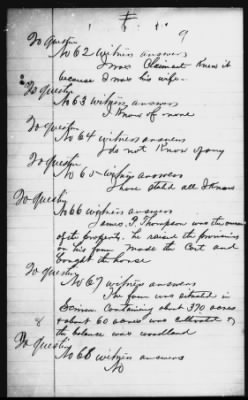 9
To question
No 62 witness answers
I was Claimant Knew it
because I was his wife.
To question
No 63 witness answers
I Know of none
To question
No 64 witness answers
I do not Know of any
To question
No 65 witness answers
I have stated all I Know
To question
No 66 witness answers
James P. Thompson was the owner
of the property. he raised the provisions
on his farm made the Cart and
bought the horse
To question
No 67 witness answers
The farm was situated in
Scriven Containing about 370 acres
& about 60 acres was cultivated &
8 the balance was woodland
To question
No 68 witness answers
No